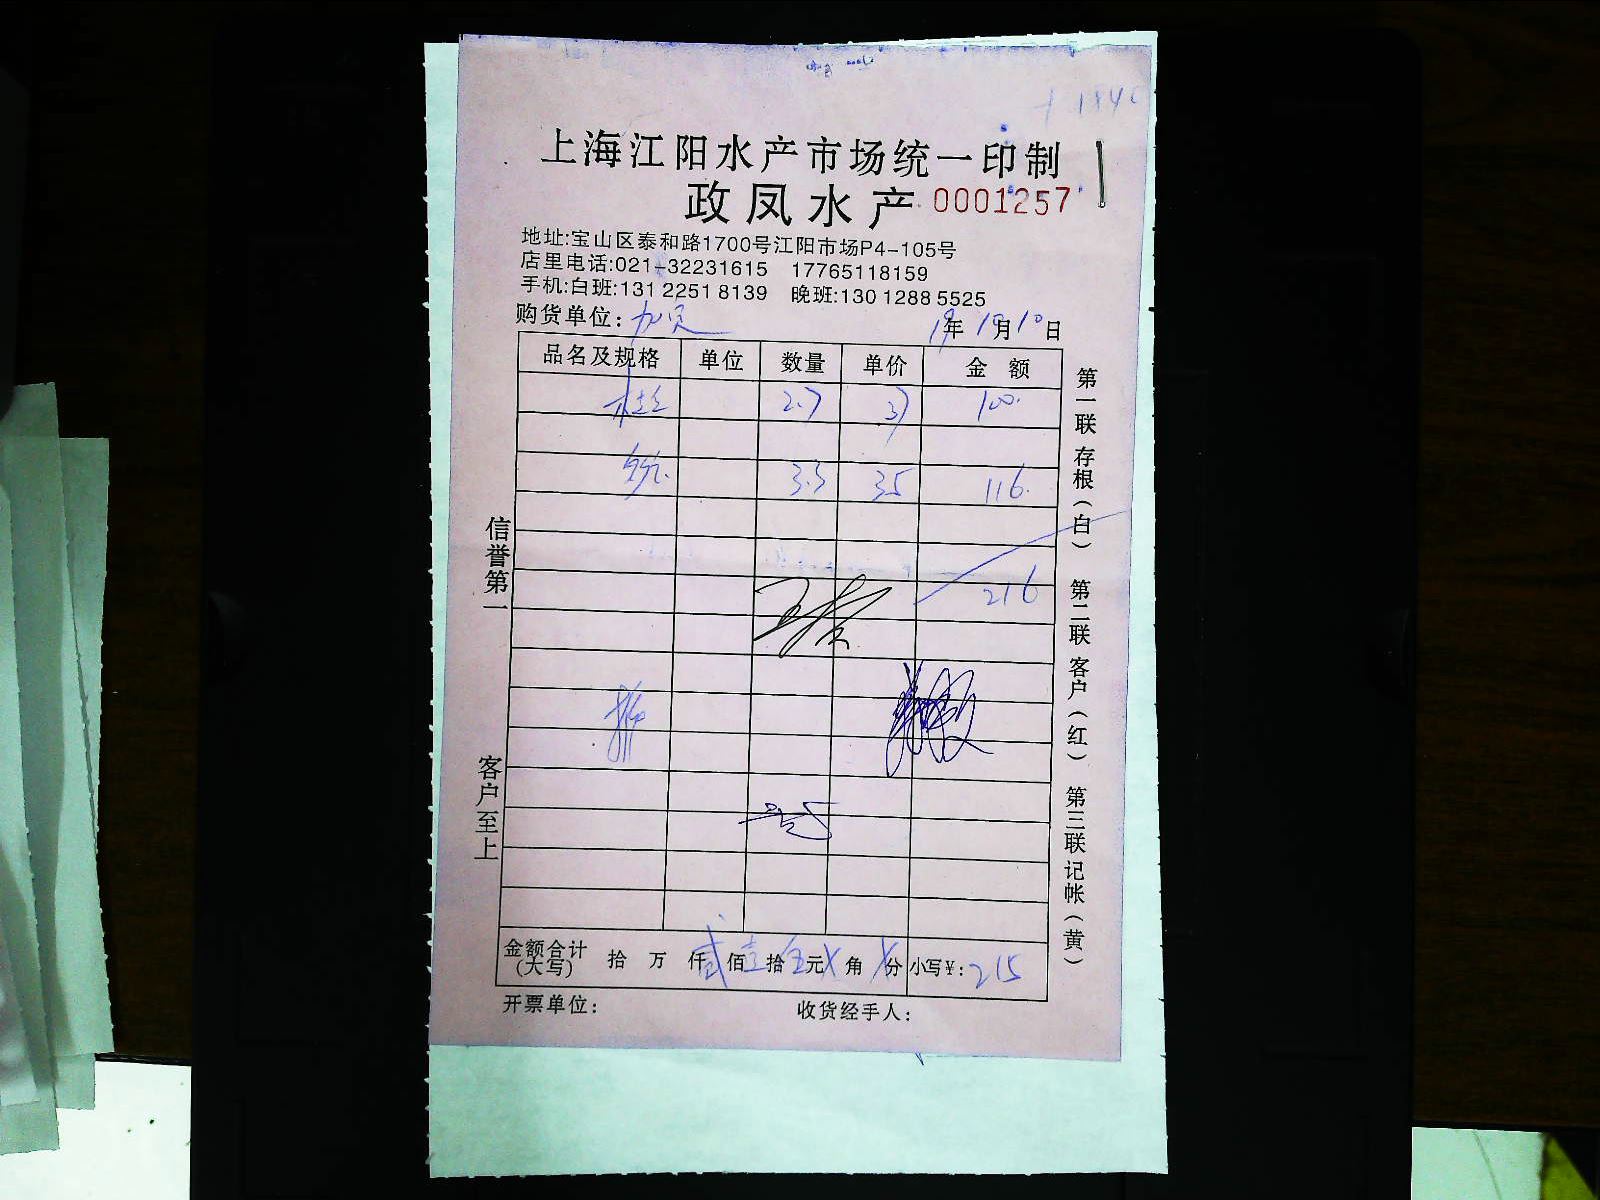 上海江阳水产市场统一印制
政凤水产 0001257
地址:宝山区泰和路1700号江阳市场P4-105号
店里电话:021-32231615 17765118159
手机:白班:131 2251 8139 晚班:130 1288 5525
购货单位: 19年10月10日
品名及规格 单位 数量 单价 金额
2.7 37 100.
3.3 35 116.
216
金额合计(大写) 拾 万 仟 贰佰 壹拾 伍元 X角 X分 小写¥:215
开票单位: 收货经手人:
信誉第一
客户至上
第一联 存根(白) 第二联 客户(红) 第三联 记帐(黄)